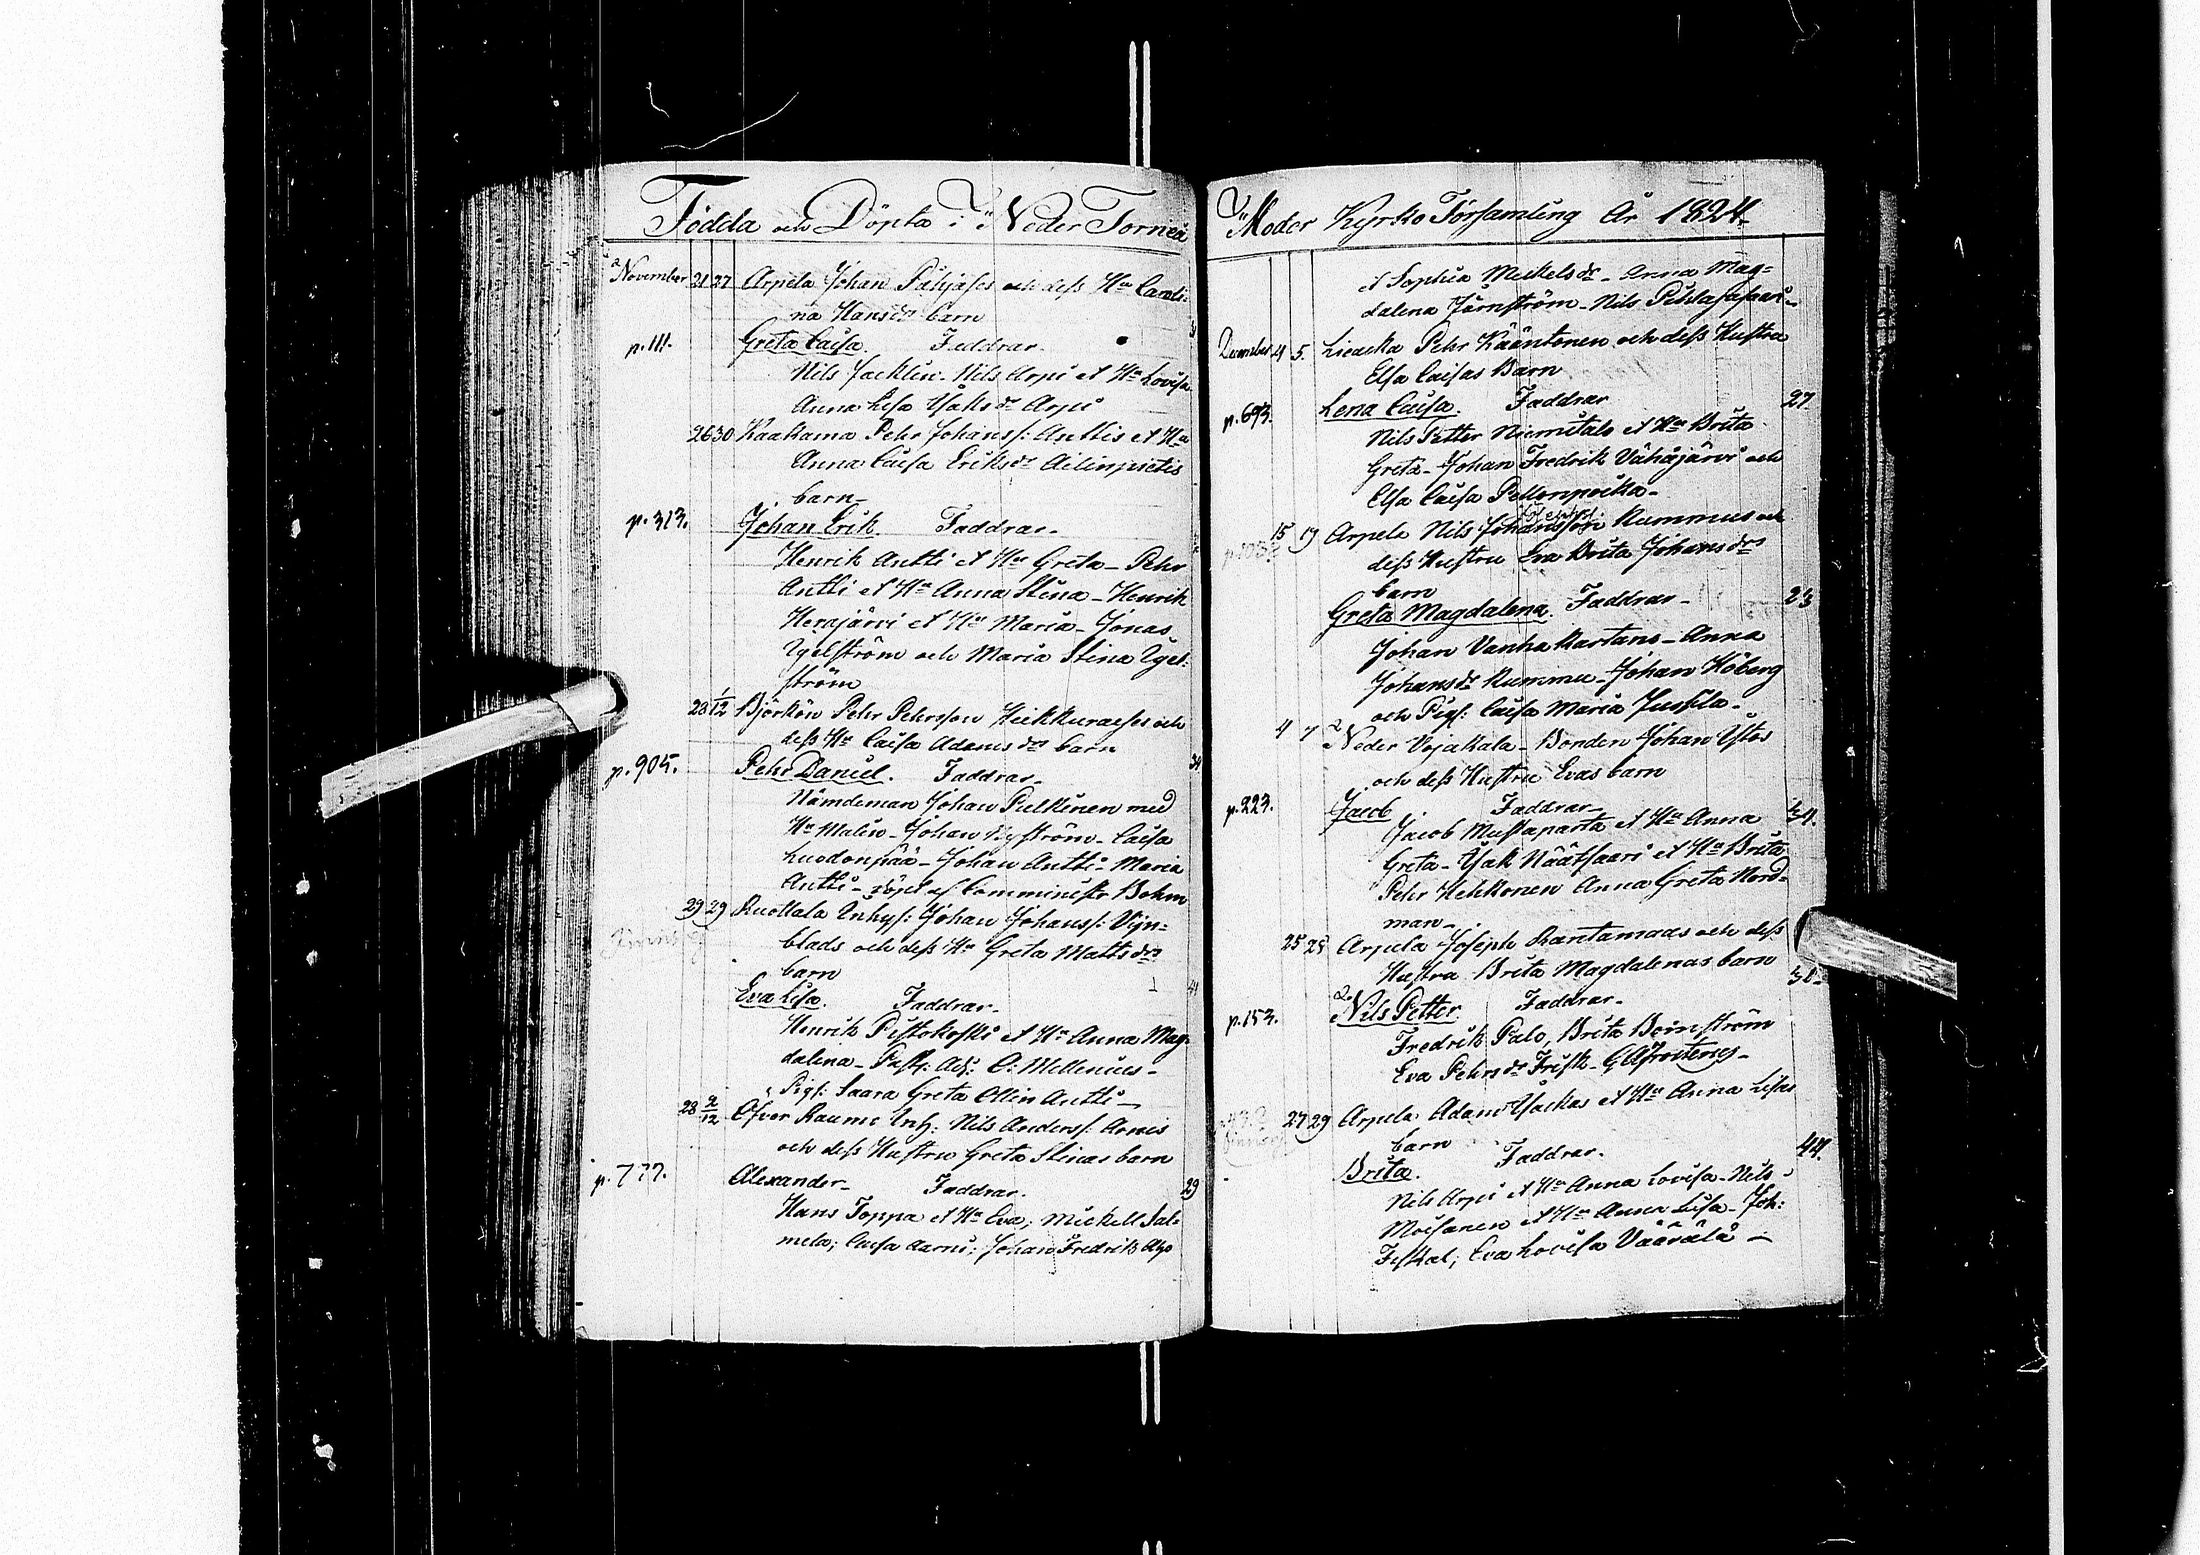 Födda och Döpta i Neder Torneå
November 21 27 Arpela Johan Päljäses och dess Hu Caroli-
na Hansdr barn
p. 111. Greta Caisa. Faddrar.
Nils Jacklin. Nils Arpi et Hu Lovisa
Anna Lisa Isaksdr Arpi
26 30 Kaakama Pehr Johanss: Anttis et Hu
Anna Caisa Eriksdr Ailinpietis
barn
p. 313. Johan Erik. Faddrar.
Henrik Antti et Hu Greta - Pehr
Antti et Hu Anna Stina - Henrik
Herajärvi et Hu Maria - Jonas
Igelström och Maria Stina Igel-
ström
28 1/12 Björkön Pehr Pehrsson och
dess Hu Caisa Adamsdrs barn
p. 905. Pehr Daniel. Faddrar. 34
Nämdeman Johan Pulkinen med
Hu Malin - Johan Nyström - Caisa
Luodonpää - Johan Antti - Maria
Antti - döpt af Comminister Bohm
29 29 Ruottala Inhys: Johan Johanss: Vign-
blads och dess Hu Greta Mattsdrs
barn
Eva Lisa. Faddrar. 41
Henrik Pistokoski et Hu Anna Mag-
dalena - Past: Adj: O: Mellenius -
Pigs: Saara Greta Ollin Antti -
28 2/12 Öfver Raumo Inh: Nils Anderss: Arnis
och dess Hustru Greta Stinas barn
p. 777. Alexander - Faddrar. 29
Hans Toppa et Hu Eva; Mickell Sal-
mela; Caisa Aarni; Johan Fredrik
Moder Kyrko Församling År 1824.
et Sophia Mickelsdr - Anna Mag-
dalena Jernström - Nils
December 4 5. Liakka Pehr Kääntonen och dess Hustru
Elsa Caisas Barn
p. 693. Lena Caisa. Faddrar 27
Nils Petter Niemitalo et Hu Brita
Greta - Johan Fredrik Vähäjärvi och
Elsa Caisa Pellonpoika -
15 19 Arpela Nils Johansson Rummus och
dess Hustru Eva Brita Johansdrs
barn
Greta Magdalena. Faddrar - 23
Johan Vanha Kartano - Anna
Johansdr Rummu - Johan Höberg
och Pigs: Caisa Maria Juskla -
4 7 Neder Vojakala - Bonden Johan Ystos
och dess Hustru Evas barn
p. 223. Jacob Faddrar
Jacob Mustaparta et Hu Anna
Greta - Isak Näätsaari et Hu Brita
Pehr Heikkonen Anna Greta Nord-
man -
25 25 Arpela Joseph Rantamaas och dess
Hustru Brita Magdalenas barn
p. 153. Nils Petter. Faddrar -
Fredrik Palo, Brita Börnström
Eva Pehrsdr Frisk -
27 29 Arpela Adam Isackas et Hu Anna Lisas
barn
Brita. Faddrar. 44.
Nils Arpi et Hu Anna Lovisa - Nils
Moisanen et Hu Anna Lisa - Joh:
Fiskal; Eva Lovisa Väärälä -